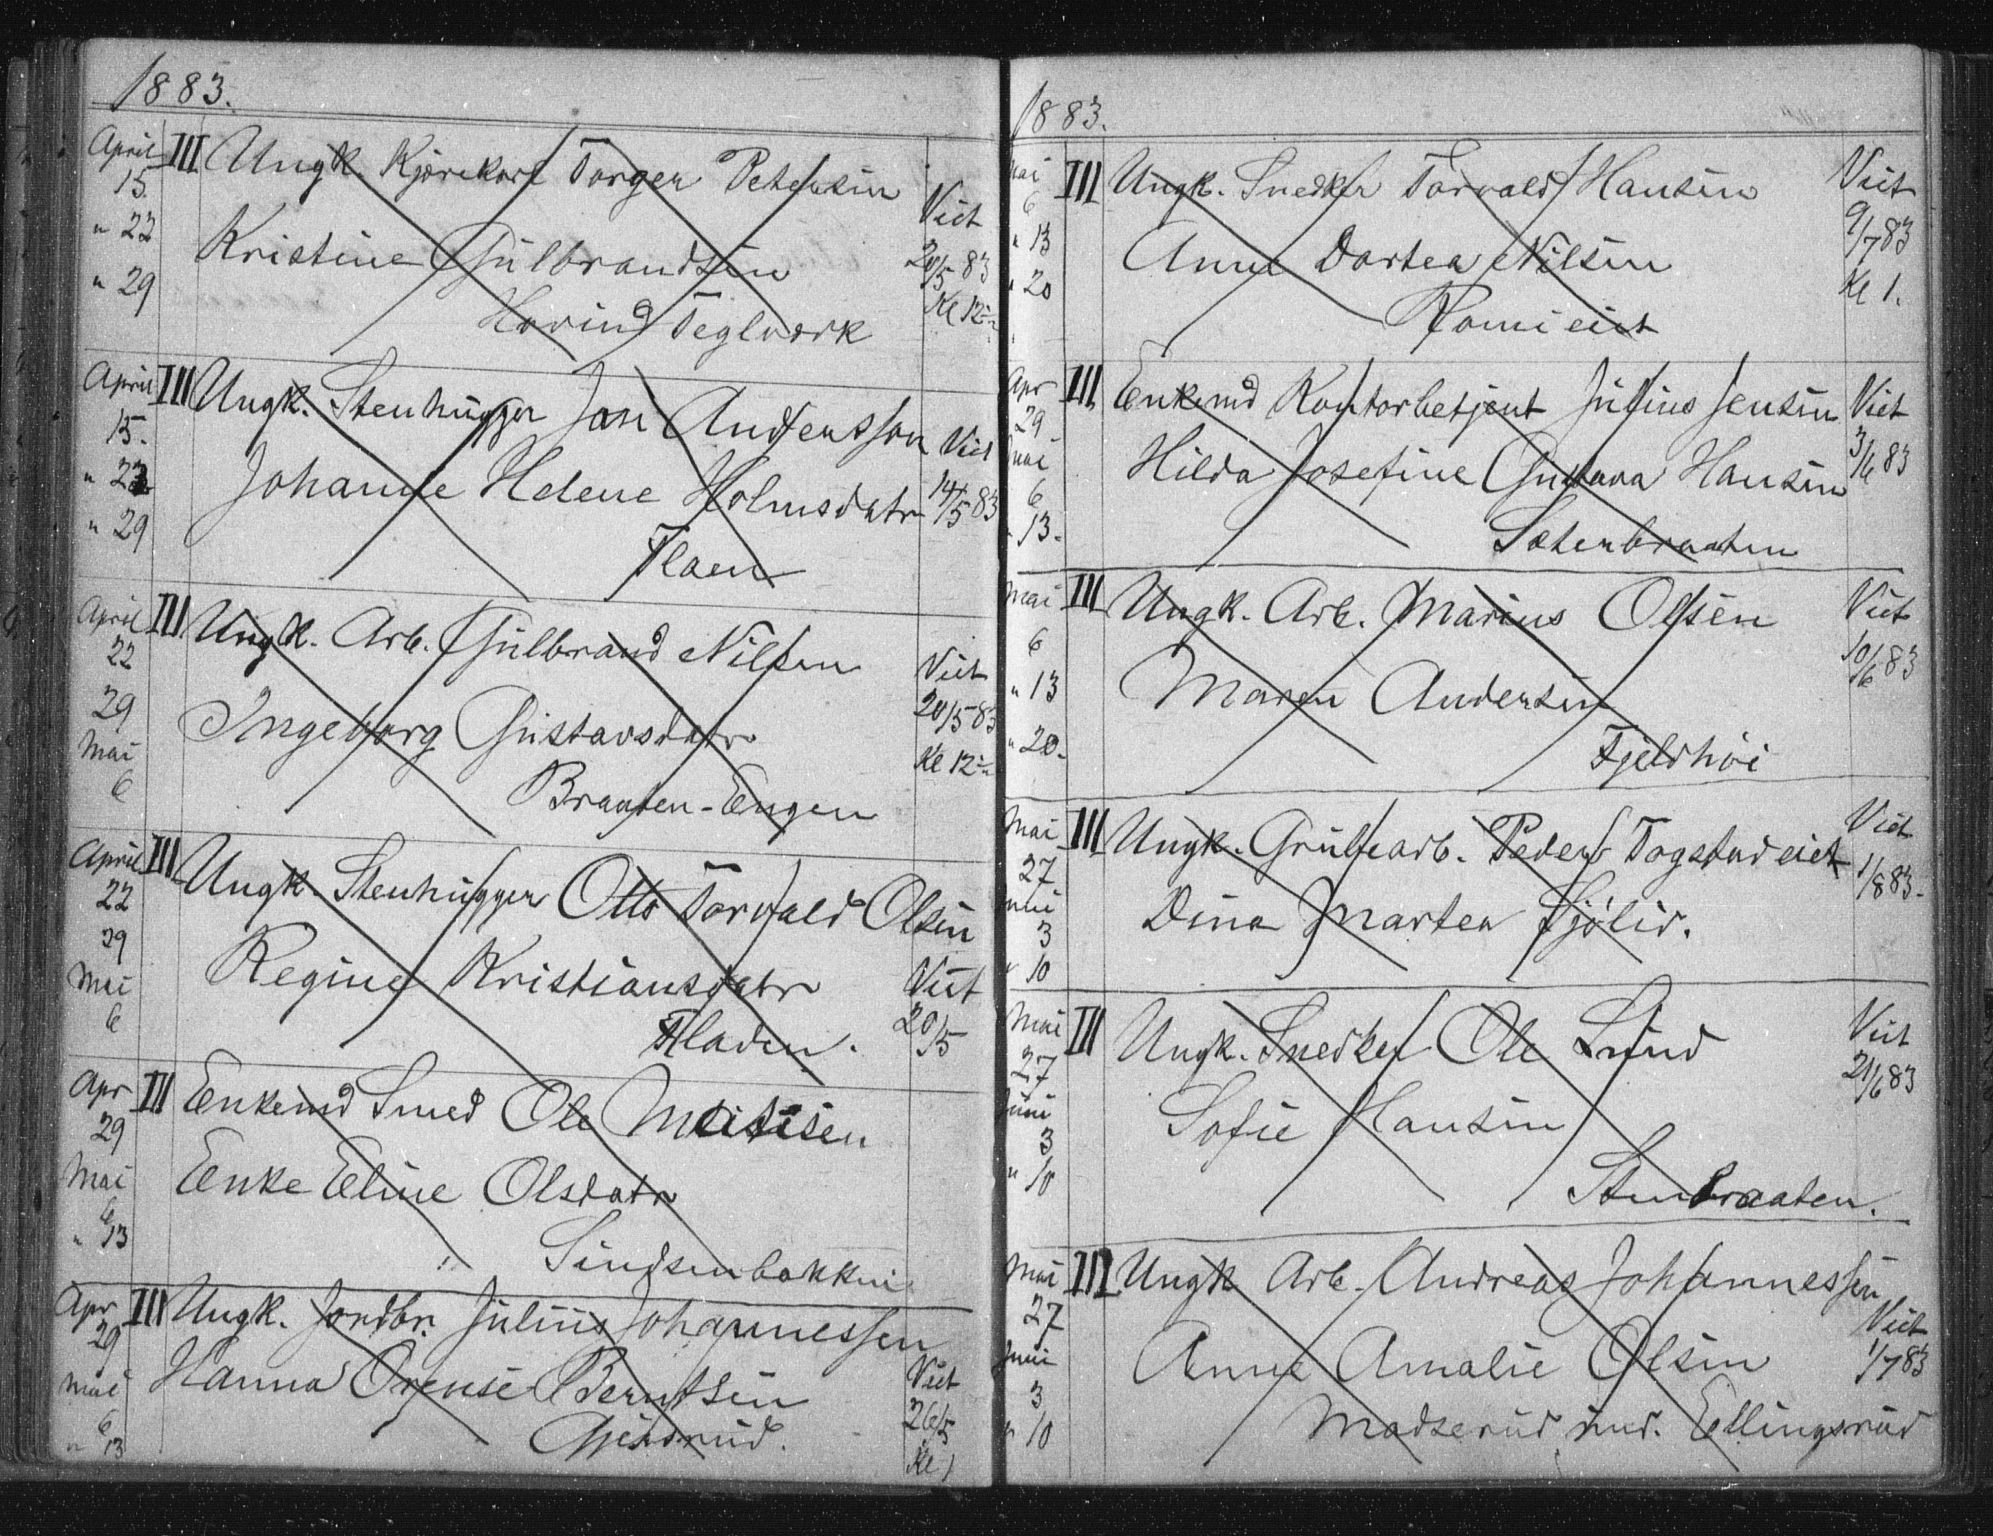 1883.
April III Ungk. Kjørekarl Torger Petersen
15.
" 22 Kristine Gulbrandsen Viet
" 29 20/5 83
Hovind Teglværk Kl 12
April III Ungk. Stenhugger Jon Anderssen
15.
" 22 Johanne Helene Holmsdatr Viet
" 29 14/5 83
Flaen
April III Ungk. Arb. Gulbrand Nilsen
22 Viet
29 Ingeborg Gustavsdatr 20/5 83
Mai Kl 12
6 Braaten-Engen
April III Ungk. Stenhugger Otto Torvald Olsen
22
29 Regine Kristiansdatr Viet
Mai 20/5
6 Fladen.
Apr III Enkemd Smed Ole Matisen
29
Mai Enke Eline Olsdatr
6
" 13 Sindsenbakken
Apr III Ungk. Jordbr. Julius Johannessen
29
Mai Hanna Orense Berntsen Viet
6 26/5
" 13 Gjetsrud. Kl 1
1883.
Mai III Ungk. Snedker Torvald Hansen Viet
6 9/7 83
" 13 Anne Dortea Nilsen Kl 1.
" 20
Romi eiet
Apr III Enkemd Kontorbetjent Julius Jensen Viet
29 3/6 83
Mai Hilda Josefine Gustava Hansen
6
" 13. Sæterbraaten
Mai III Ungk. Arb. Marius Olsen Viet
6 10/6 83
" 13 Maren Andersen
" 20. Fjeldhøi
Mai III Ungk. Grubearb. Peder Togstad eiet Viet
27 1/8 83.
Juni Dina Martea Sjølid.
3
" 10
Mai III Ungk. Snedker Ole Lund Viet
27 21/6 83
Juni Sofie Hansen
3
" 10 Stenbraaten.
Mai III Ungk Arb. Andreas Johannessen
27 Viet
Juni Anne Amalie Olsen 1/7 83
3
" 10 Madserud und. Ellingsrud